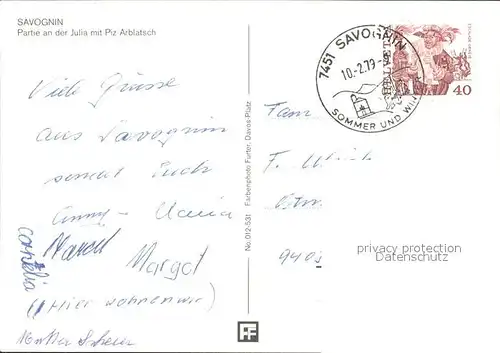 SAVOGNIN
Partie an der Julia mit Piz Arblatsch
Viele Grüsse
aus Savognin
sendet Euch
Anny - Maria
Marcel
Margot
(Hier wohnen wir)
No. 012-531 Farbenphoto Furter, Davos-Platz
7451 SAVOGNIN
10.-2.79
SOMMER UND WIN
HELVETIA
40
Fam
F. Ulrich
940
privacy protection
Datenschutz